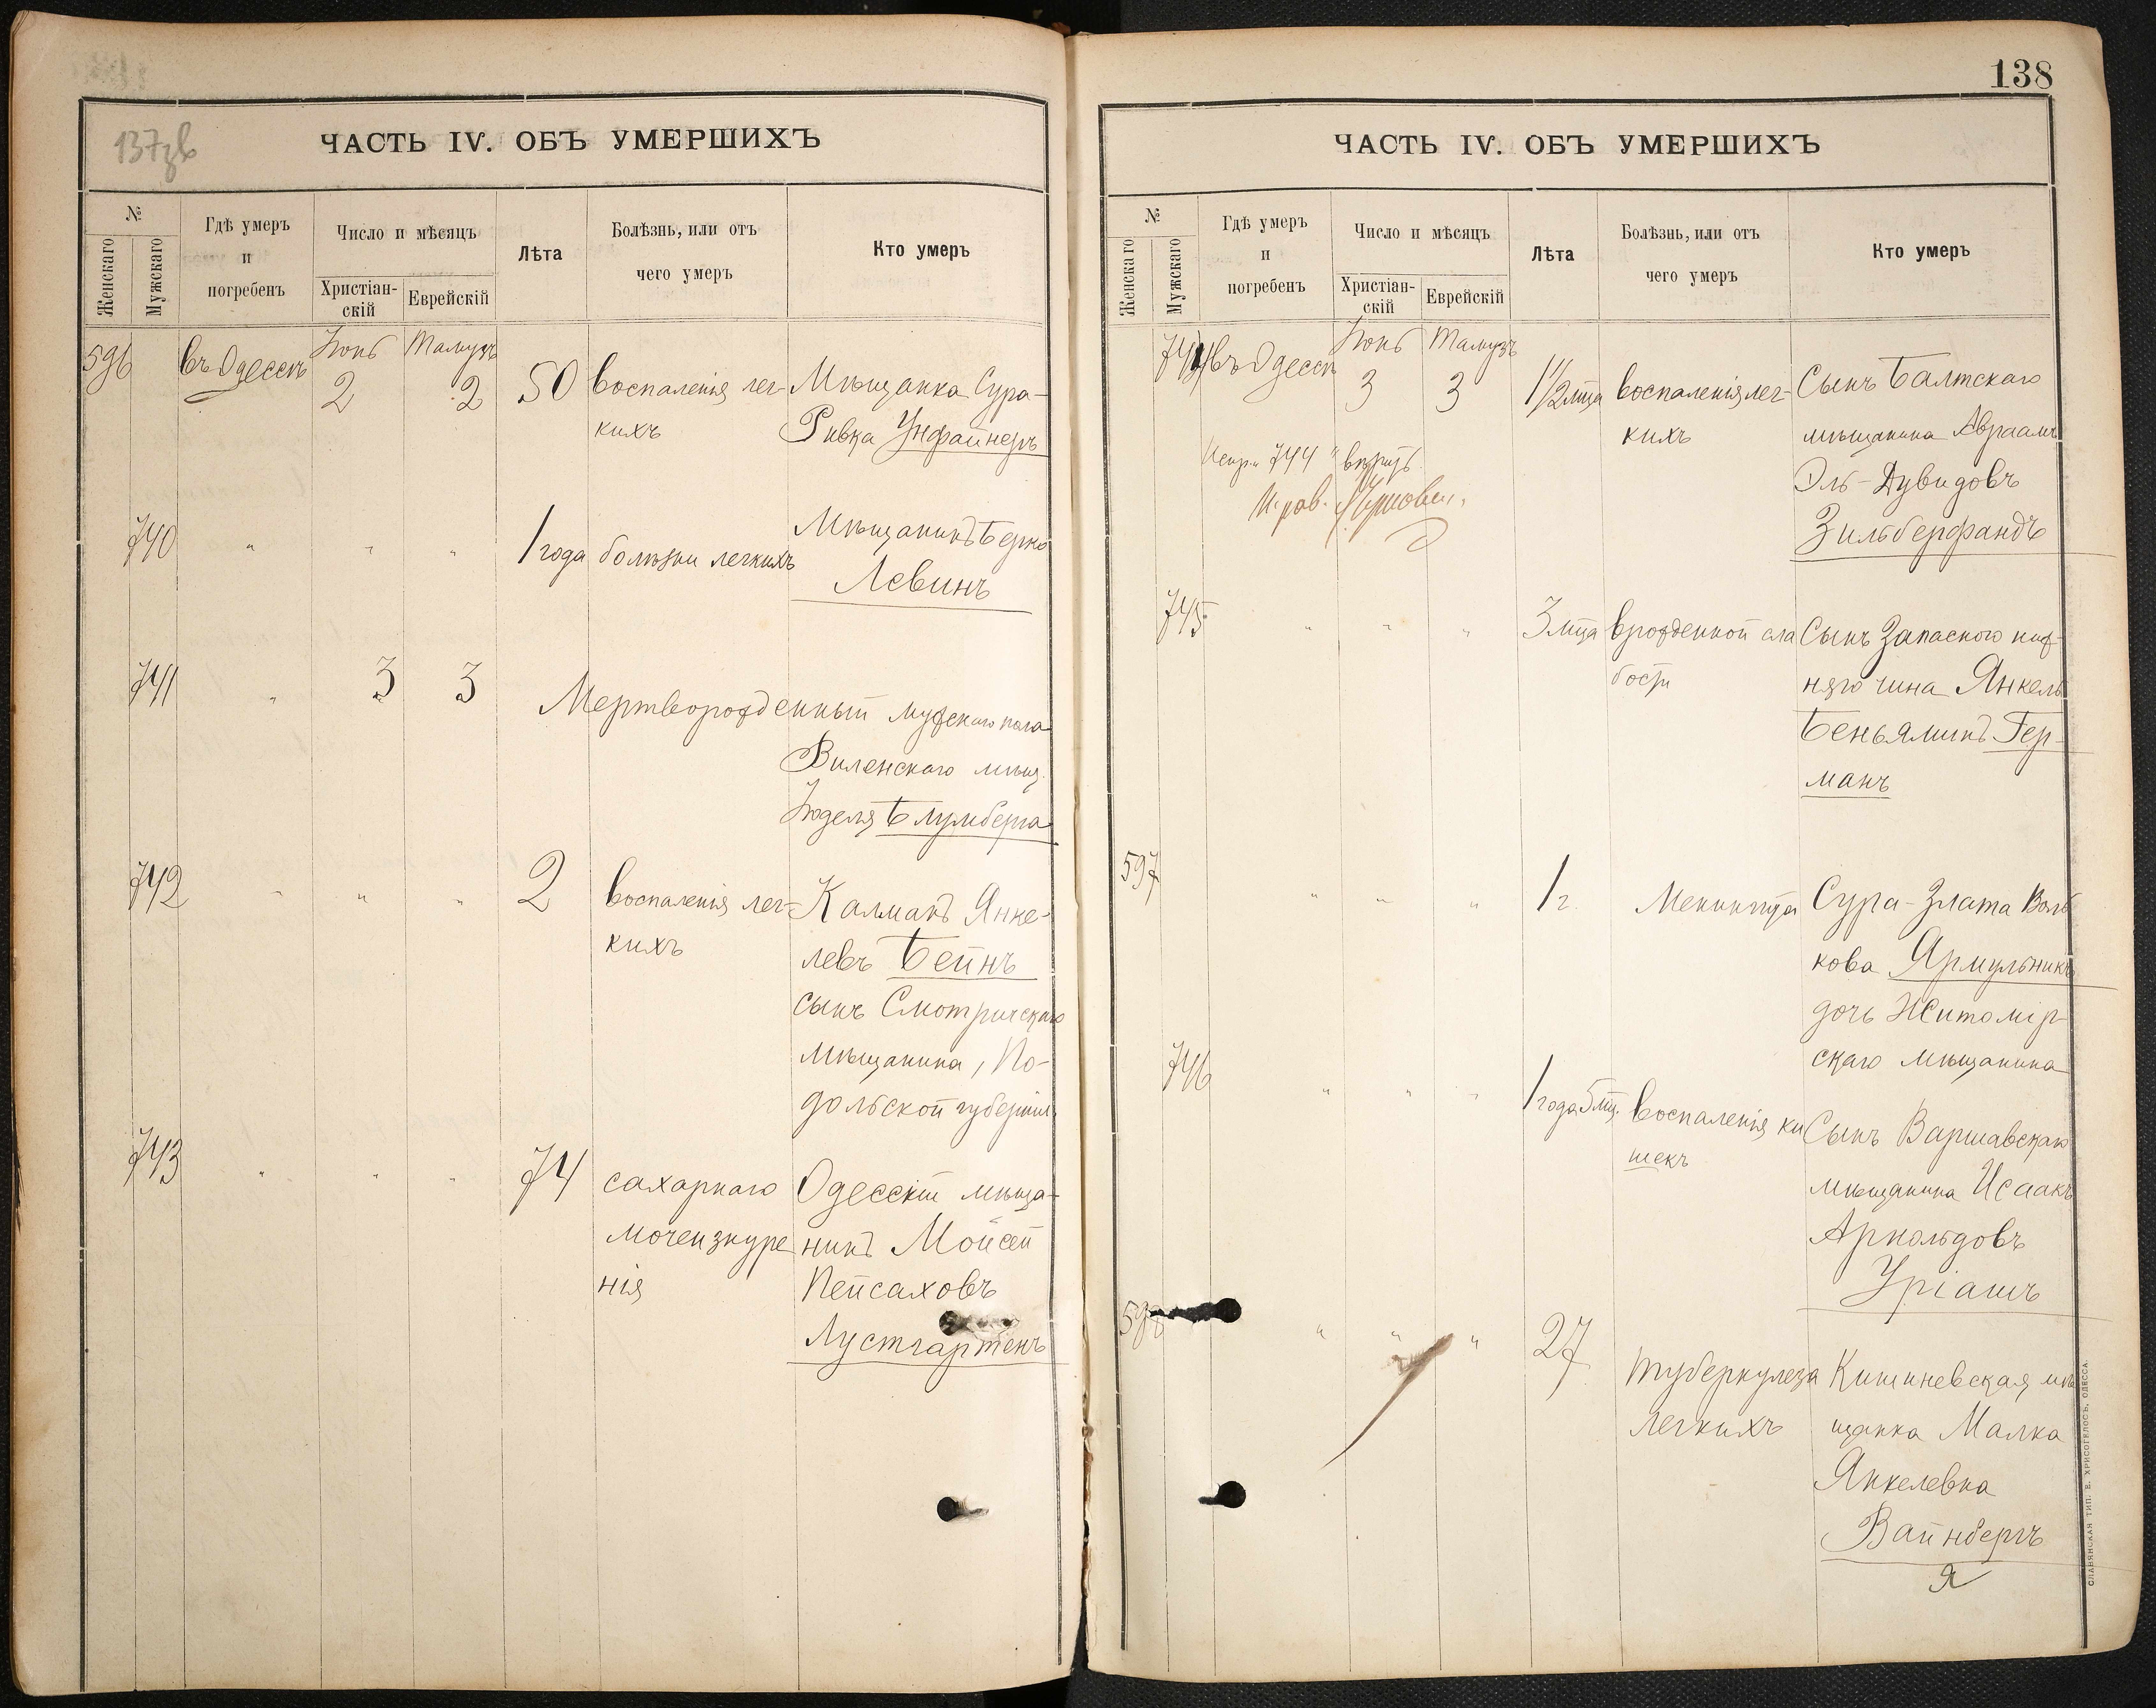 137зв
ЧАСТЬ IV. ОБЪ УМЕРШИХЪ
№
Женскаго
Мужскаго
Гдѣ умеръ
и
погребенъ
Число и мѣсяцъ
Христіан-
скій
Еврейскій
Лѣта
Болѣзнь, или отъ
чего умеръ
Кто умеръ
596 въ Одессѣ Іюнь 2 Тамузъ 2 50 воспаленія лег- Мѣщанка Сура-
кихъ Ривка Унфайнеръ
740 " " " 1 года болѣзни легкихъ Мѣщанинъ Берко
Левинъ
741 " 3 3 Мертворожденный мужскаго пола
Виленскаго мѣщ.
Юделя Блумберга
742 " " " 2 воспаленія лег- Калманъ Янке-
кихъ левъ Бейнъ
сынъ Смотричскаго
мѣщанина, По-
дольской губерніи
743 " " " 74 сахарнаго Одесскій мѣща-
мочеизнуре нинъ Мойсей
нія Пейсаховъ
Лустгартенъ
138
ЧАСТЬ IV. ОБЪ УМЕРШИХЪ
№
Женскаго
Мужскаго
Гдѣ умеръ
и
погребенъ
Число и мѣсяцъ
Христіан-
скій
Еврейскій
Лѣта
Болѣзнь, или отъ
чего умеръ
Кто умеръ
744 въ Одессѣ Іюнь 3 Тамузъ 3 1½ мца воспаленія лег- Сынъ Балтскаго
кихъ мѣщанина Авраамъ
Эль-Дувидовъ
Зильберфандъ
Испр. 744 " вѣрить
И. рав.
745 " " " 3 мца врожденной сла Сынъ Запаснаго ниж-
бости няго чина Янкель
Беньяминъ Гер-
манъ
597 " " " 1 г. Менингита Сура-Злата Воль
кова Ярмульникъ
дочь Житомір-
скаго мѣщанина
746 " " " 1 года 5 мц. воспаленія ки Сынъ Варшавскаго
шекъ мѣщанина Исаакъ
Арнольдовъ
Уріашъ
598 " " " 27 туберкулеза Кишиневская мѣ
легкихъ щанка Малка
Янкелевна
Вайнбергъ
СЛАВЯНСКАЯ ТИП. Е. ХРИСОГЕЛОСЪ, ОДЕССА.